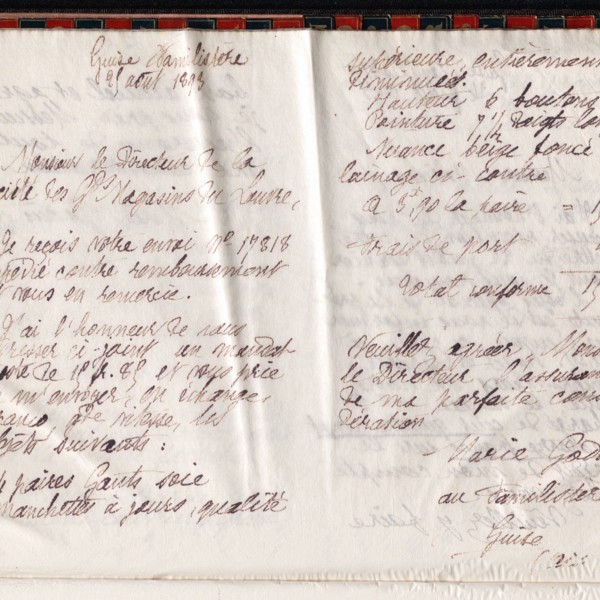 Guise Familistère
25 août 1893
Monsieur le Directeur de la
ciété des Gds Magasins du Louvre,
Je reçois votre envoi N° 17818
pédié contre remboursement
t vous en remercie.
J'ai l'honneur de vous
resser ci-joint un mandat
de 15 f. 85 et vous prie
m'envoyer, en échange,
franco, gde vitesse, les
bjets suivants :
4 paires Gants soie
manchettes à jours, qualité
supérieure, entièrement
Hauteur 6 boutons
Pointure 7 1/4 Doigts lo
Nuance beige foncé
lainage ci-contre
à 3f.90 la paire = 15
Frais de port
Total conforme 15
Veuillez agréer, Mons
le Directeur l'assuran
de ma parfaite consi
dération
Marie God
au Familistère
Guise